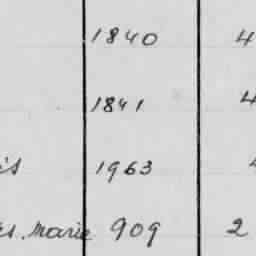 1840 4
1841 4
is 1963
s. Marie 909 2